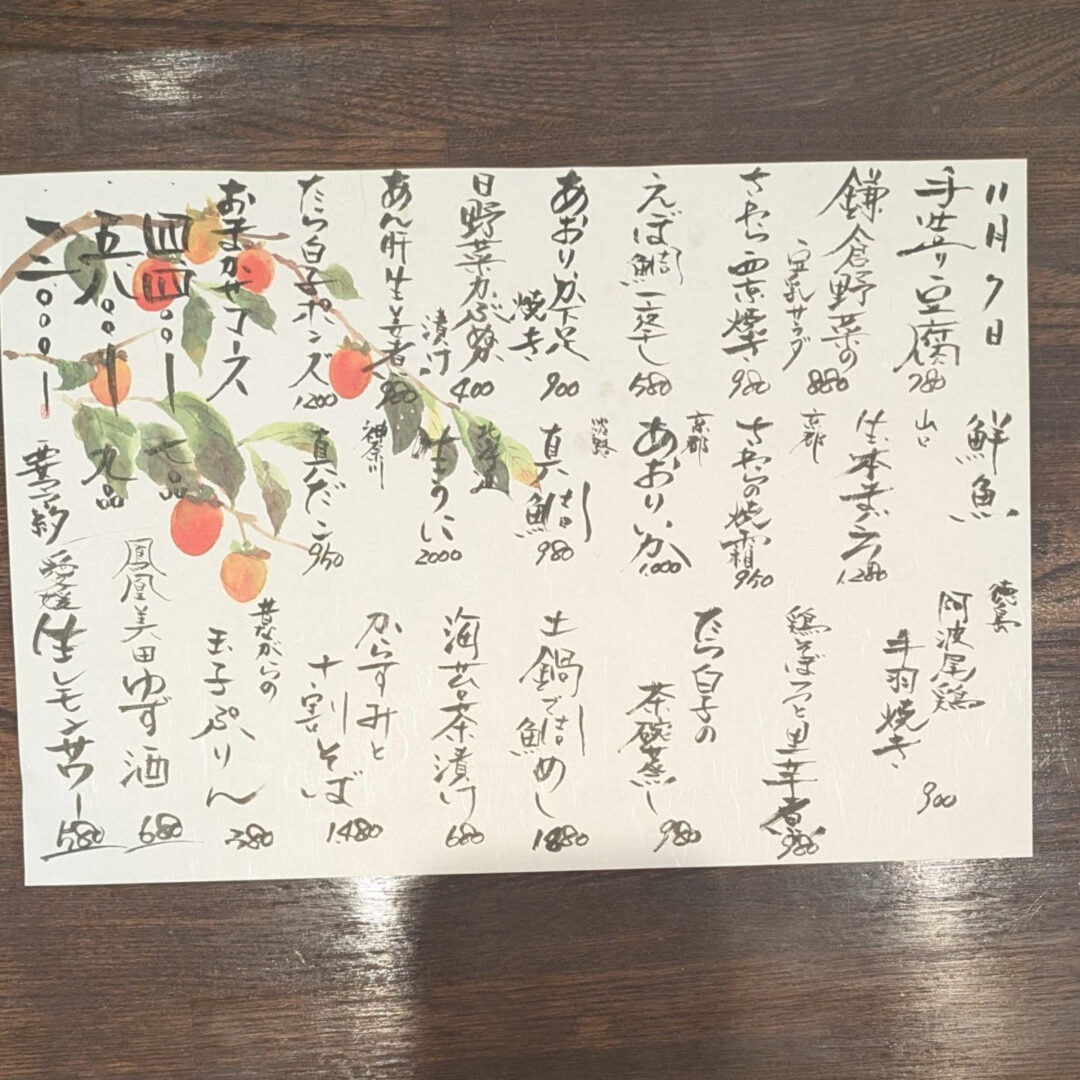 11月7日
手造り豆腐
780
鎌倉野菜の
豆乳サラダ
880
さわら西京焼き
980
えぼ鯛一夜干し
580
あおりいか下足
焼き
900
日野菜かぶ
漬け
400
あん肝生姜煮
980
たら白子ポンズ
1200
おまかせコース
四四〇〇ー
七品
五八〇〇ー
九品
鮮魚
山口
生本まぐろ
1280
京都
さわらの焼霜
950
京都
あおりいか
1,000
淡路
真鯛
980
北海道
生うに
2000
神奈川
真だこ
950
徳島
阿波尾鶏
手羽焼き
900
鶏そぼろと里芋煮
980
たら白子の
茶碗蒸し
980
土鍋で鯛めし
1880
海苔茶漬け
680
からすみと
十割そば
1.480
昔ながらの
玉子ぷりん
380
鳳凰美田ゆず酒
680
愛媛
生レモンサワー
580